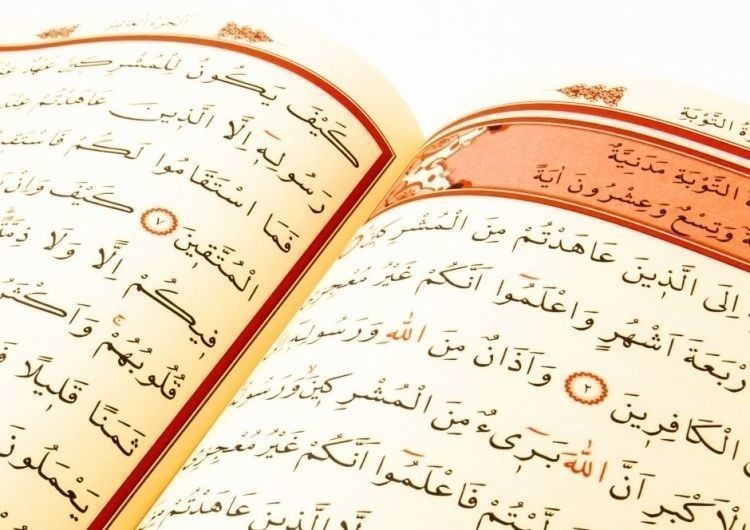 التَّوْبَةِ
التَّوْبَةِ مَدَنِيَّةٌ
وَتِسْعٌ وَعِشْرُونَ اٰيَةً
اِلَى الَّذ۪ينَ عَاهَدْتُمْ مِنَ الْمُشْرِك۪ينَ
اَرْبَعَةَ اَشْهُرٍ وَاعْلَمُٓوا اَنَّكُمْ غَيْرُ مُعْجِزِي
الْكَافِر۪ينَ ٢ وَاَذَانٌ مِنَ اللّٰهِ وَرَسُولِه۪ٓ
الْاَكْبَرِ اَنَّ اللّٰهَ بَر۪ٓيءٌ مِنَ الْمُشْرِك۪ينَ وَرَسُولُهُ
فَاعْلَمُٓوا اَنَّكُمْ غَيْرُ مُعْجِزِي
اِلَّا الَّذ۪ينَ عَاهَدْتُمْ
الجزء العاشر
كَيْفَ يَكُونُ لِلْمُشْرِك۪ينَ عَهْدٌ عِنْدَ
رَسُولِه۪ٓ اِلَّا الَّذ۪ينَ عَاهَدْتُمْ عِنْدَ
فَمَا اسْتَقَامُوا لَكُمْ فَاسْتَق۪يمُوا
الْمُتَّق۪ينَ ٧ كَيْفَ وَاِنْ
ف۪يكُمْ اِلًّا وَلَا ذِمَّةً
قُلُوبُهُمْ وَاَكْثَرُ
ثَمَنًا قَل۪يلًا
يَعْمَلُونَ